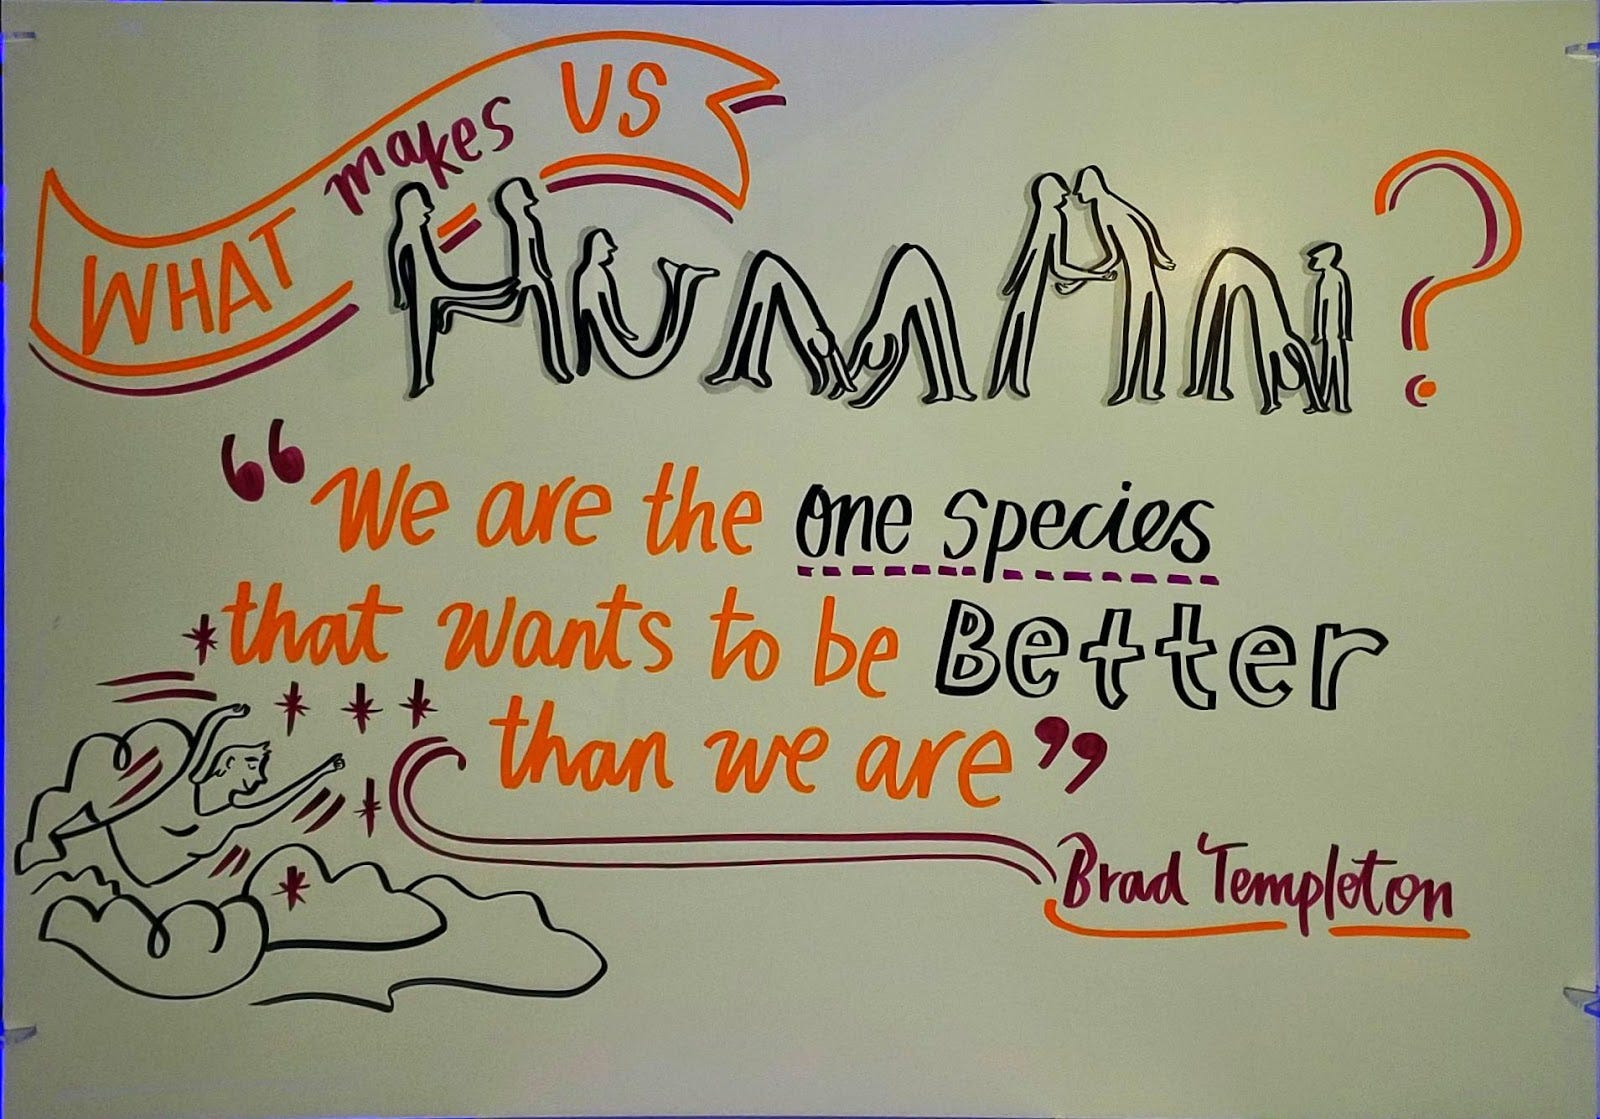 WHAT makes US
HUMAN?
“We are the one species
that wants to be Better
than we are”
Brad Templeton